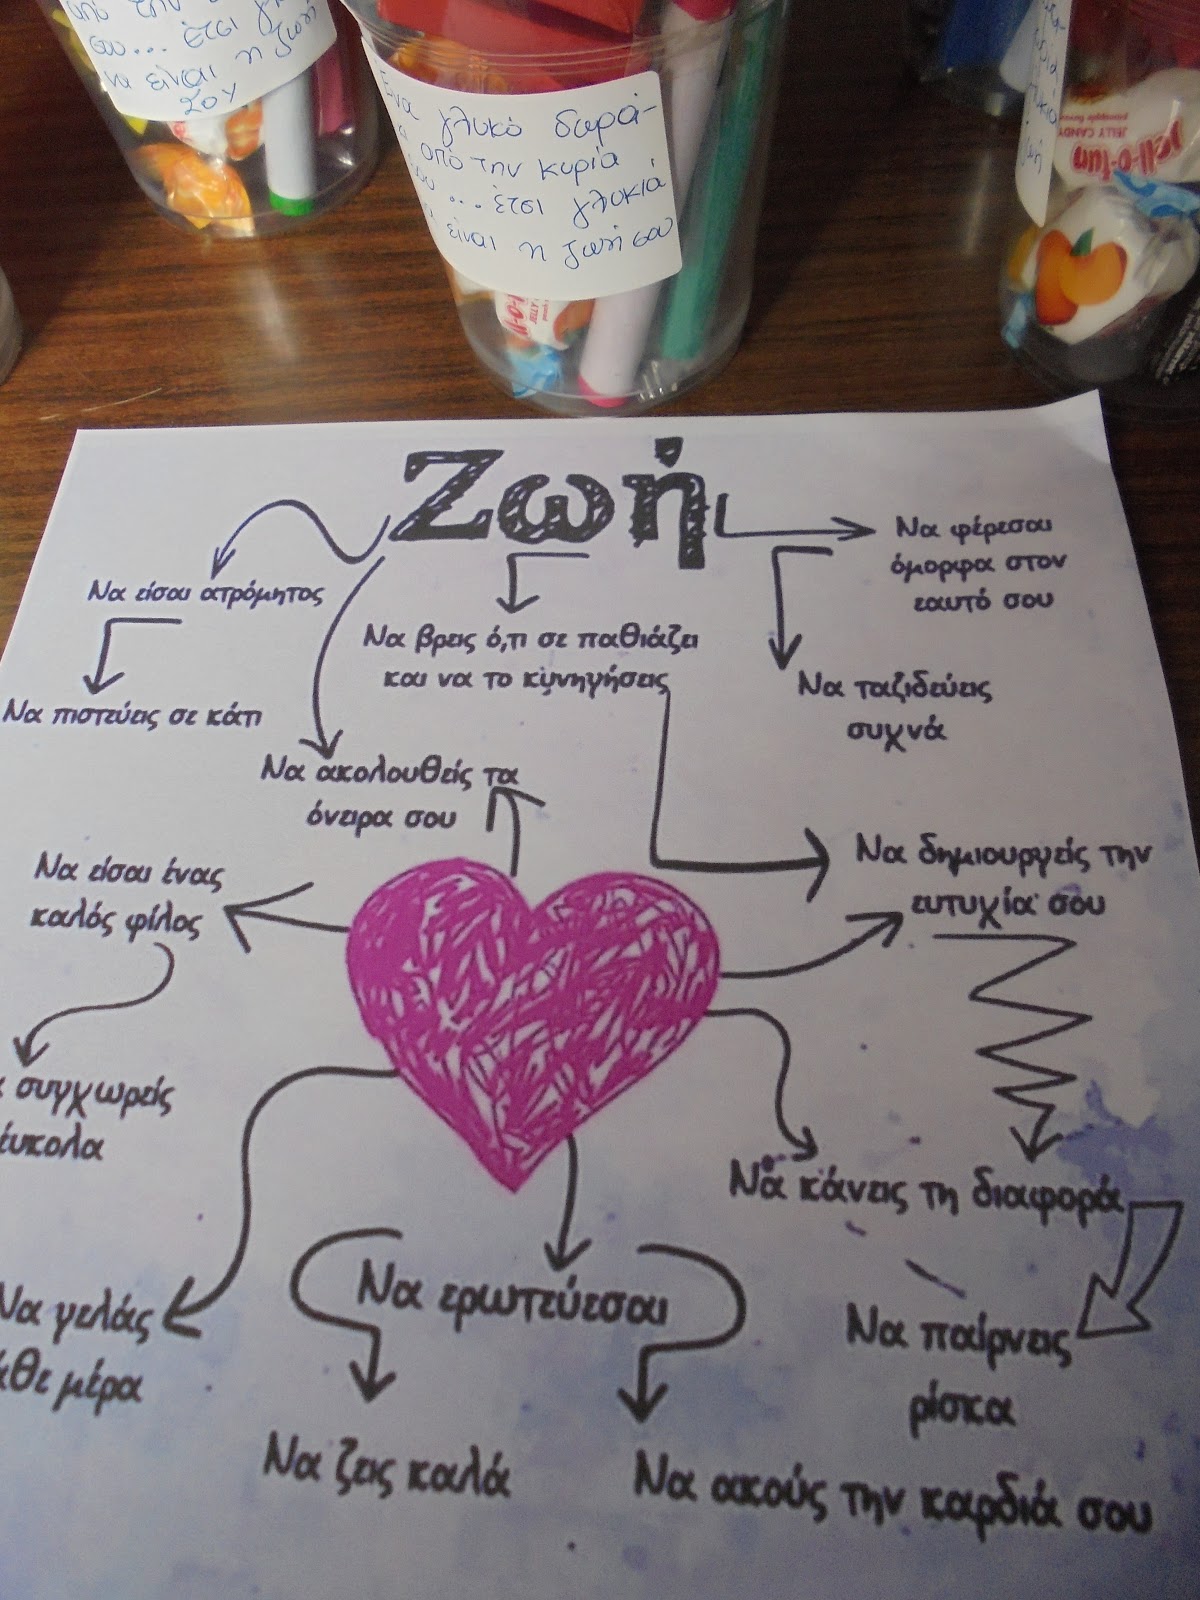 από την
σου... έτσι
να είναι η ζωή
σου
Ένα γλυκό δωρά-
από την κυρία
σου... έτσι γλυκιά
είναι η ζωή σου
JELLY CANDY
Jell-o-fun
Ζωή
Να φέρεσαι
όμορφα στον
εαυτό σου
Να είσαι ατρόμητος
Να βρεις ό,τι σε παθιάζει
και να το κυνηγήσεις
Να ταξιδεύεις
συχνά
Να πιστεύεις σε κάτι
Να ακολουθείς τα
όνειρα σου
Να είσαι ένας
καλός φίλος
Να δημιουργείς την
ευτυχία σου
συγχωρείς
εύκολα
Να κάνεις τη διαφορά
Να γελάς
άθε μέρα
Να ερωτεύεσαι
Να παίρνεις
ρίσκα
Να ζεις καλά
Να ακούς την καρδιά σου